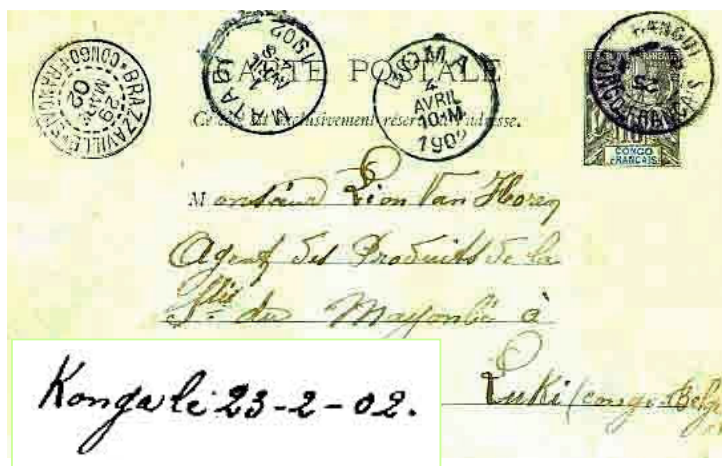 BRAZZAVILLE
CONGO-FRANÇAIS
29
MARS
02
MATADI
AVRIL
BOMA
4
AVRIL
10-M
1902
BANGUI
CONGO FRANÇAIS
CONGO
FRANÇAIS
CARTE POSTALE
Ce côté est exclusivement réservé à l'adresse.
Monsieur Léon Van Horen
Agent des Produits de la
Sté du Mayombe à
Luki (congo Belge
Konga le 23-2-02.